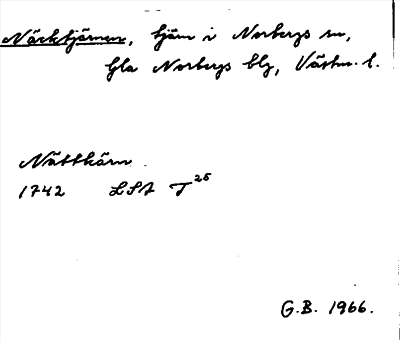 Näcktjärnen, tjärn i Norbergs sn,
Gla Norbergs blg, Västm. l.
Nättkärn.
1742 LSA T 25
G.B. 1966.